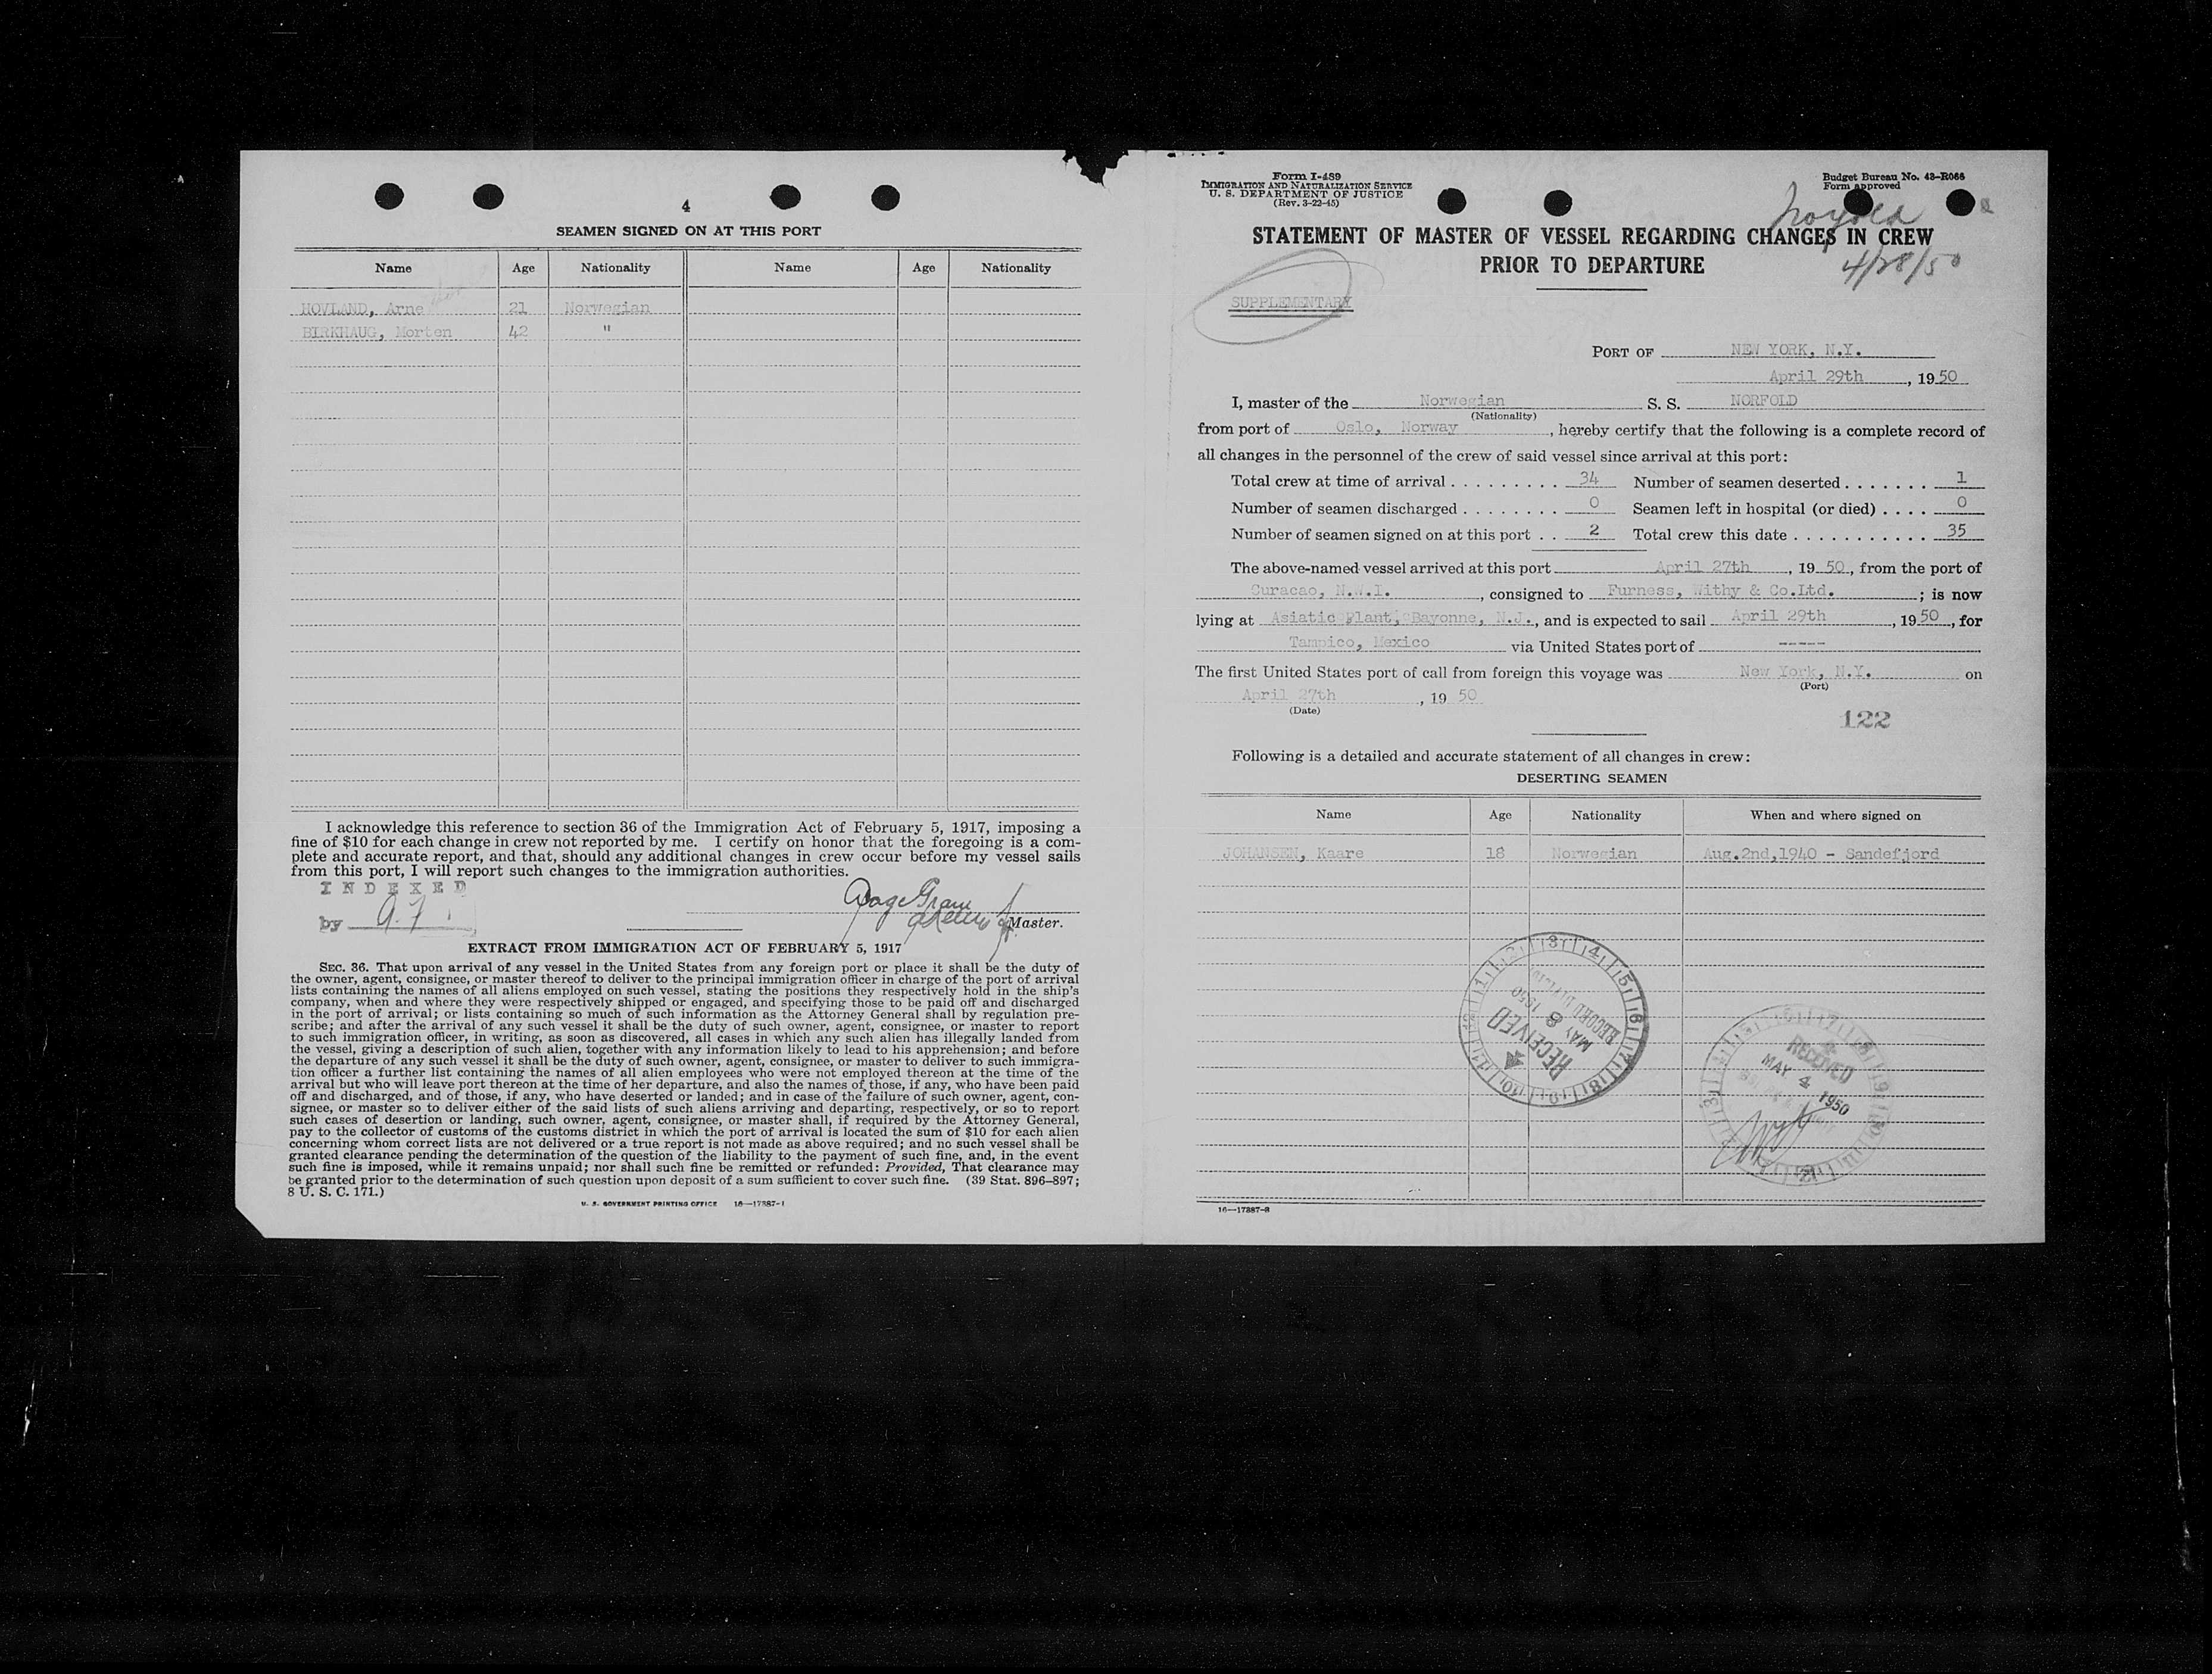 4
SEAMEN SIGNED ON AT THIS PORT
Name Age Nationality Name Age Nationality
HOVLAND, Arne 21 Norwegian
BIRKHAUG, Morten 42 "
I acknowledge this reference to section 36 of the Immigration Act of February 5, 1917, imposing a
fine of $10 for each change in crew not reported by me. I certify on honor that the foregoing is a com-
plete and accurate report, and that, should any additional changes in crew occur before my vessel sails
from this port, I will report such changes to the immigration authorities.
INDEXED
by
Master.
EXTRACT FROM IMMIGRATION ACT OF FEBRUARY 5, 1917
SEC. 36. That upon arrival of any vessel in the United States from any foreign port or place it shall be the duty of
the owner, agent, consignee, or master thereof to deliver to the principal immigration officer in charge of the port of arrival
lists containing the names of all aliens employed on such vessel, stating the positions they respectively hold in the ship's
company, when and where they were respectively shipped or engaged, and specifying those to be paid off and discharged
in the port of arrival; or lists containing so much of such information as the Attorney General shall by regulation pre-
scribe; and after the arrival of any such vessel it shall be the duty of such owner, agent, consignee, or master to report
to such immigration officer, in writing, as soon as discovered, all cases in which any such alien has illegally landed from
the vessel, giving a description of such alien, together with any information likely to lead to his apprehension; and before
the departure of any such vessel it shall be the duty of such owner, agent, consignee, or master to deliver to such immigra-
tion officer a further list containing the names of all alien employees who were not employed thereon at the time of the
arrival but who will leave port thereon at the time of her departure, and also the names of those, if any, who have been paid
off and discharged, and of those, if any, who have deserted or landed; and in case of the failure of such owner, agent, con-
signee, or master so to deliver either of the said lists of such aliens arriving and departing, respectively, or so to report
such cases of desertion or landing, such owner, agent, consignee, or master shall, if required by the Attorney General,
pay to the collector of customs of the customs district in which the port of arrival is located the sum of $10 for each alien
concerning whom correct lists are not delivered or a true report is not made as above required; and no such vessel shall be
granted clearance pending the determination of the question of the liability to the payment of such fine, and, in the event
such fine is imposed, while it remains unpaid; nor shall such fine be remitted or refunded: Provided, That clearance may
be granted prior to the determination of such question upon deposit of a sum sufficient to cover such fine. (39 Stat. 896–897;
8 U. S. C. 171.)
U. S. GOVERNMENT PRINTING OFFICE 16—17387-1
Form I-489
IMMIGRATION AND NATURALIZATION SERVICE
U. S. DEPARTMENT OF JUSTICE
(Rev. 3-22-45)
Budget Bureau No. 43-R066
Form approved
STATEMENT OF MASTER OF VESSEL REGARDING CHANGES IN CREW
PRIOR TO DEPARTURE
4/28/50
SUPPLEMENTARY
PORT OF NEW YORK, N.Y.
April 29th, 1950
I, master of the Norwegian S. S. NORFOLD
(Nationality)
from port of Oslo, Norway, hereby certify that the following is a complete record of
all changes in the personnel of the crew of said vessel since arrival at this port:
Total crew at time of arrival . . . . . . . . . 34 Number of seamen deserted . . . . . . . 1
Number of seamen discharged . . . . . . . . 0 Seamen left in hospital (or died) . . . . 0
Number of seamen signed on at this port . . 2 Total crew this date . . . . . . . . . . . 35
The above-named vessel arrived at this port April 27th, 1950, from the port of
Curacao, N.W.I., consigned to Furness, Withy & Co.Ltd.; is now
lying at Asiatic Plant, Bayonne, N.J., and is expected to sail April 29th, 1950, for
Tampico, Mexico via United States port of -----
The first United States port of call from foreign this voyage was New York, N.Y. on
(Port)
April 27th, 19 50
(Date)
122
Following is a detailed and accurate statement of all changes in crew:
DESERTING SEAMEN
Name Age Nationality When and where signed on
JOHANSEN, Kaare 18 Norwegian Aug.2nd,1940 - Sandefjord
RECEIVED
MAY 8 1950
RECORD DIVISION
RECEIVED
MAY 4 1950
16—17387-3